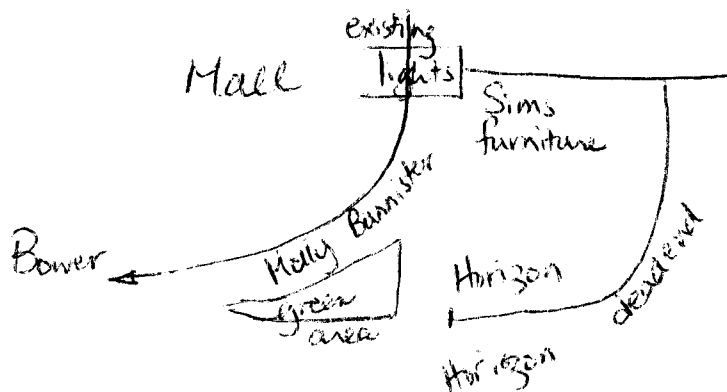 existing
lights
Mall
Sims
furniture
Molly Bannister
Bower
green
area
Horizon
deadend
Horizon